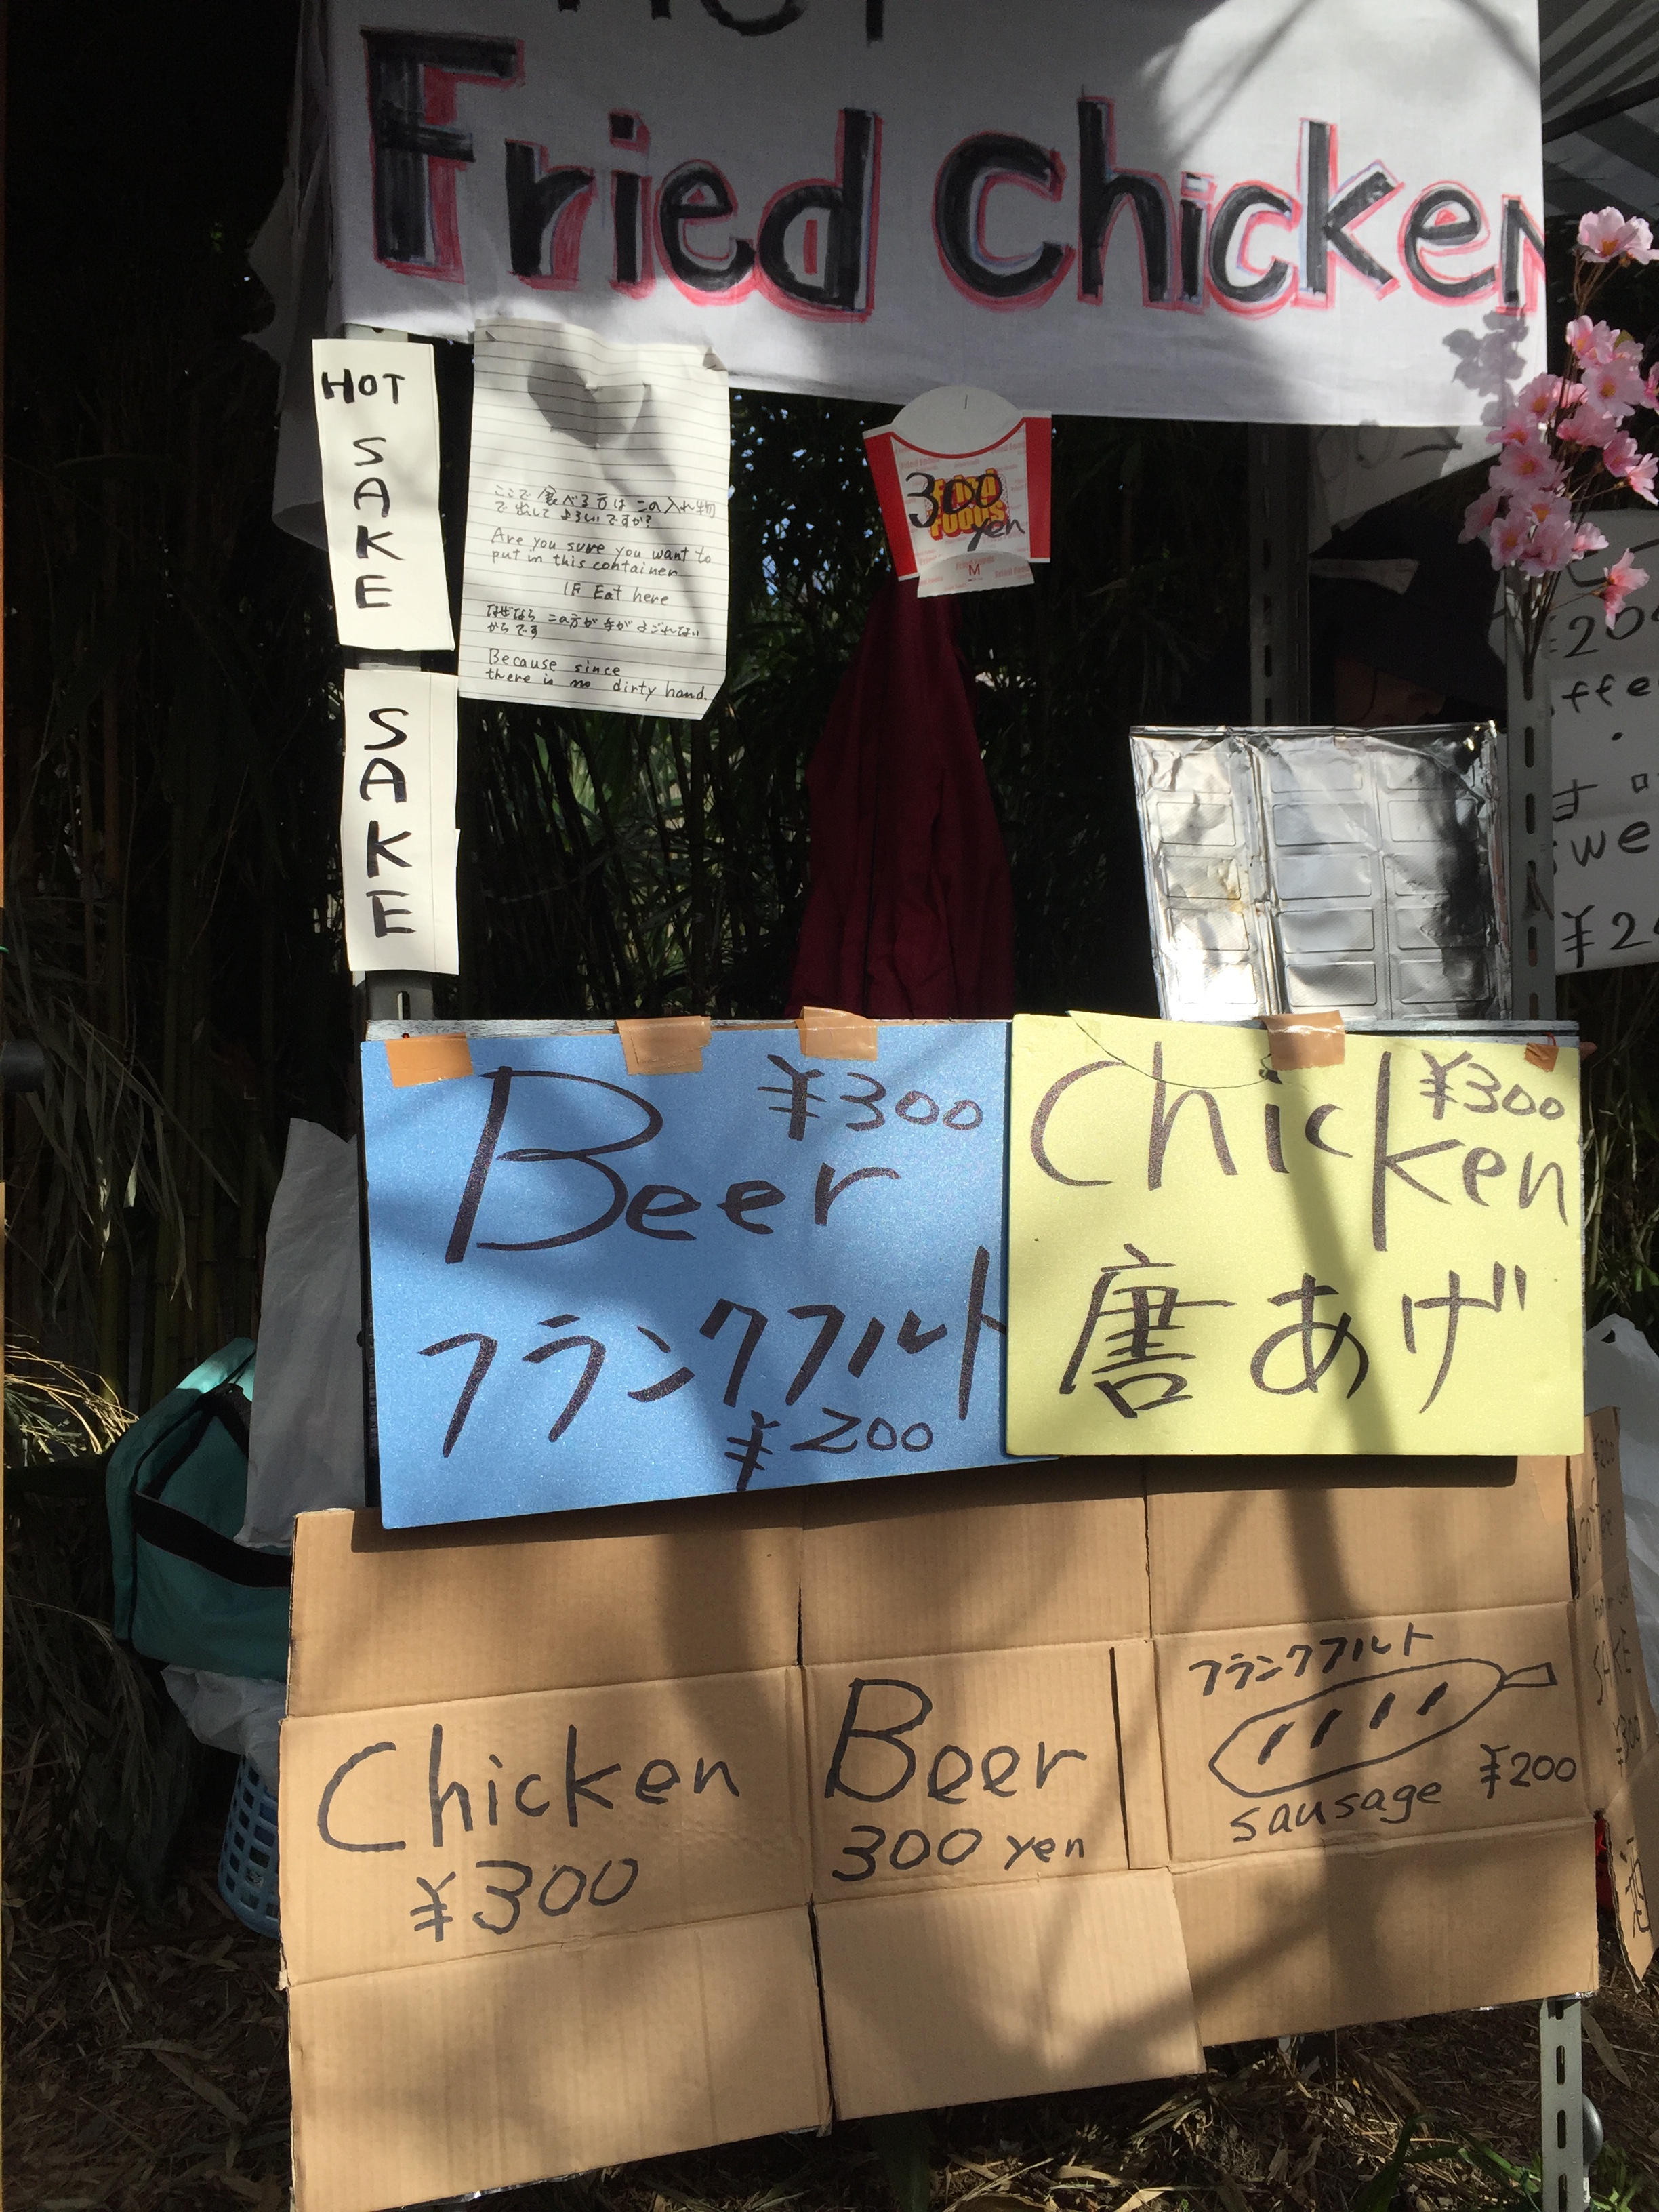 HOT
Fried Chicken
HOT
SAKE
SAKE
ここで食べる方はこの入れ物
で出してよろしいですか?
Are you sure you want to
put in this container
IF Eat here
なぜなら この方が手がよごれない
からです
Because since
there is no dirty hand.
300
yen
Fried
FOODS
M
¥20
ffee
¥2
Beer ¥300
フランクフルト
¥200
Chicken ¥300
唐あげ
Chicken
¥300
Beer
300 yen
フランクフルト
sausage ¥200
SAKE
¥300
酒